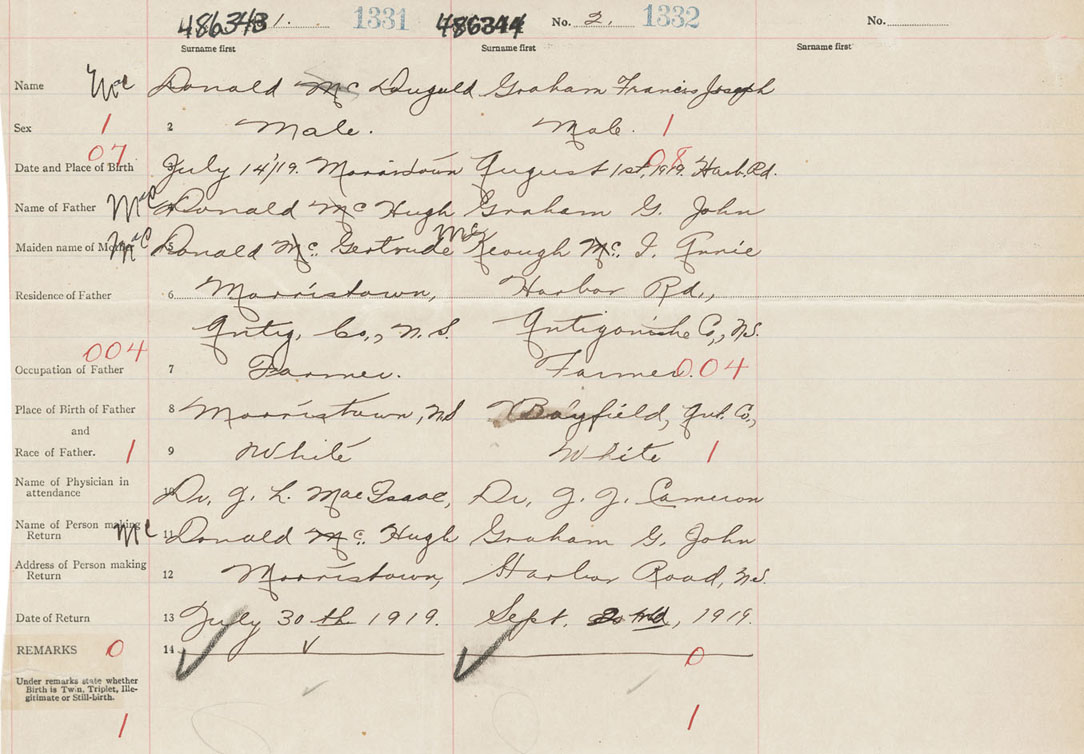 486343 1. 1331 486344 No. 2. 1332 No.
Surname first Surname first Surname first
Name Mc Donald Mc Dugald Graham Francis Joseph
Sex 1 2 Male. Male. 1
07 08
Date and Place of Birth 3 July 14/19. Morristown August 1st, 1919. Harb. Rd.
Name of Father Mc 4 Donald Mc Hugh Graham G. John
Maiden name of Mother Mc 5 Donald Mc. Gertrude Mc Keough Mc. I. Annie
Residence of Father 6 Morristown, Harbor Rd.,
Antig. Co., N.S. Antigonishe Co., N.S.
004
Occupation of Father 7 Farmer. Farmer. 004
Place of Birth of Father 8 Morristown, N.S Bayfield, Ant. Co.,
and
Race of Father. 1 9 White White 1
Name of Physician in
attendance 10 Dr. J. L. MacIsaac, Dr. J. J. Cameron
Name of Person making
Return Mc 11 Donald Mc. Hugh Graham G. John
Address of Person making
Return 12 Morristown, Harbor Road, N.S.
Date of Return 13 July 30th 1919. Sept. 1919.
REMARKS 0 14 0
Under remarks state whether
Birth is Twin, Triplet, Ille-
gitimate or Still-birth.
1 1